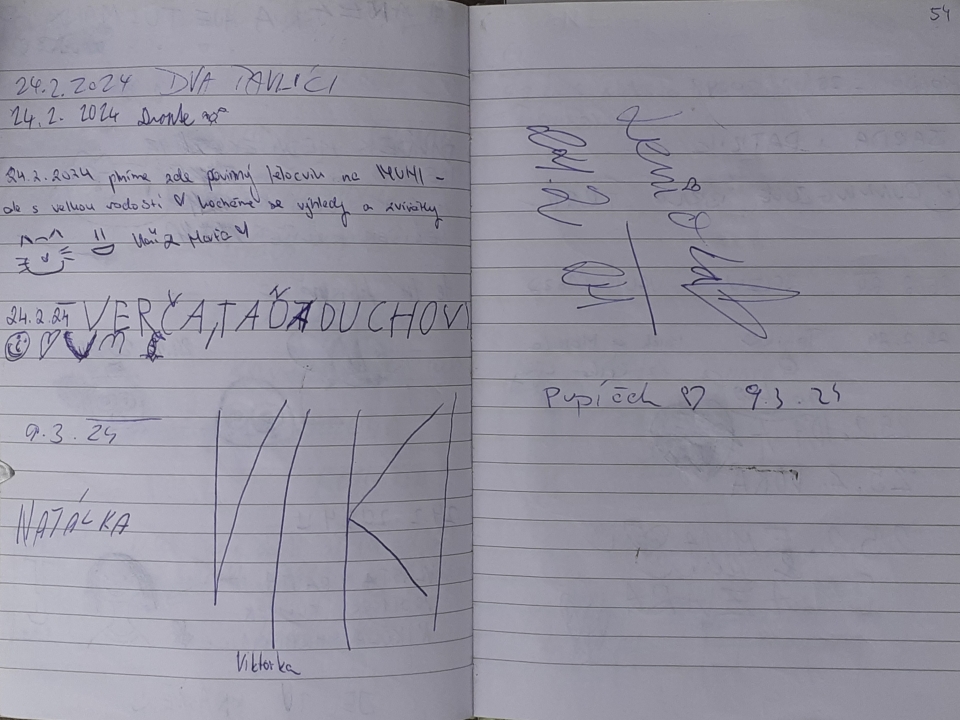 24.2.2024 DVA TAVLÍCI
24.2. 2024
24.2.2024 plníme zde povinný tělocvik na MUNI -
ale s velkou radostí ♡ kocháme se výhledy a zvířátky
a
24.2.24 VERČA, TÁĎA DUCHOV
9.3.24
NATÁLKA
VIKI
Viktorka
54
Pupíček ♡ 9.3.24